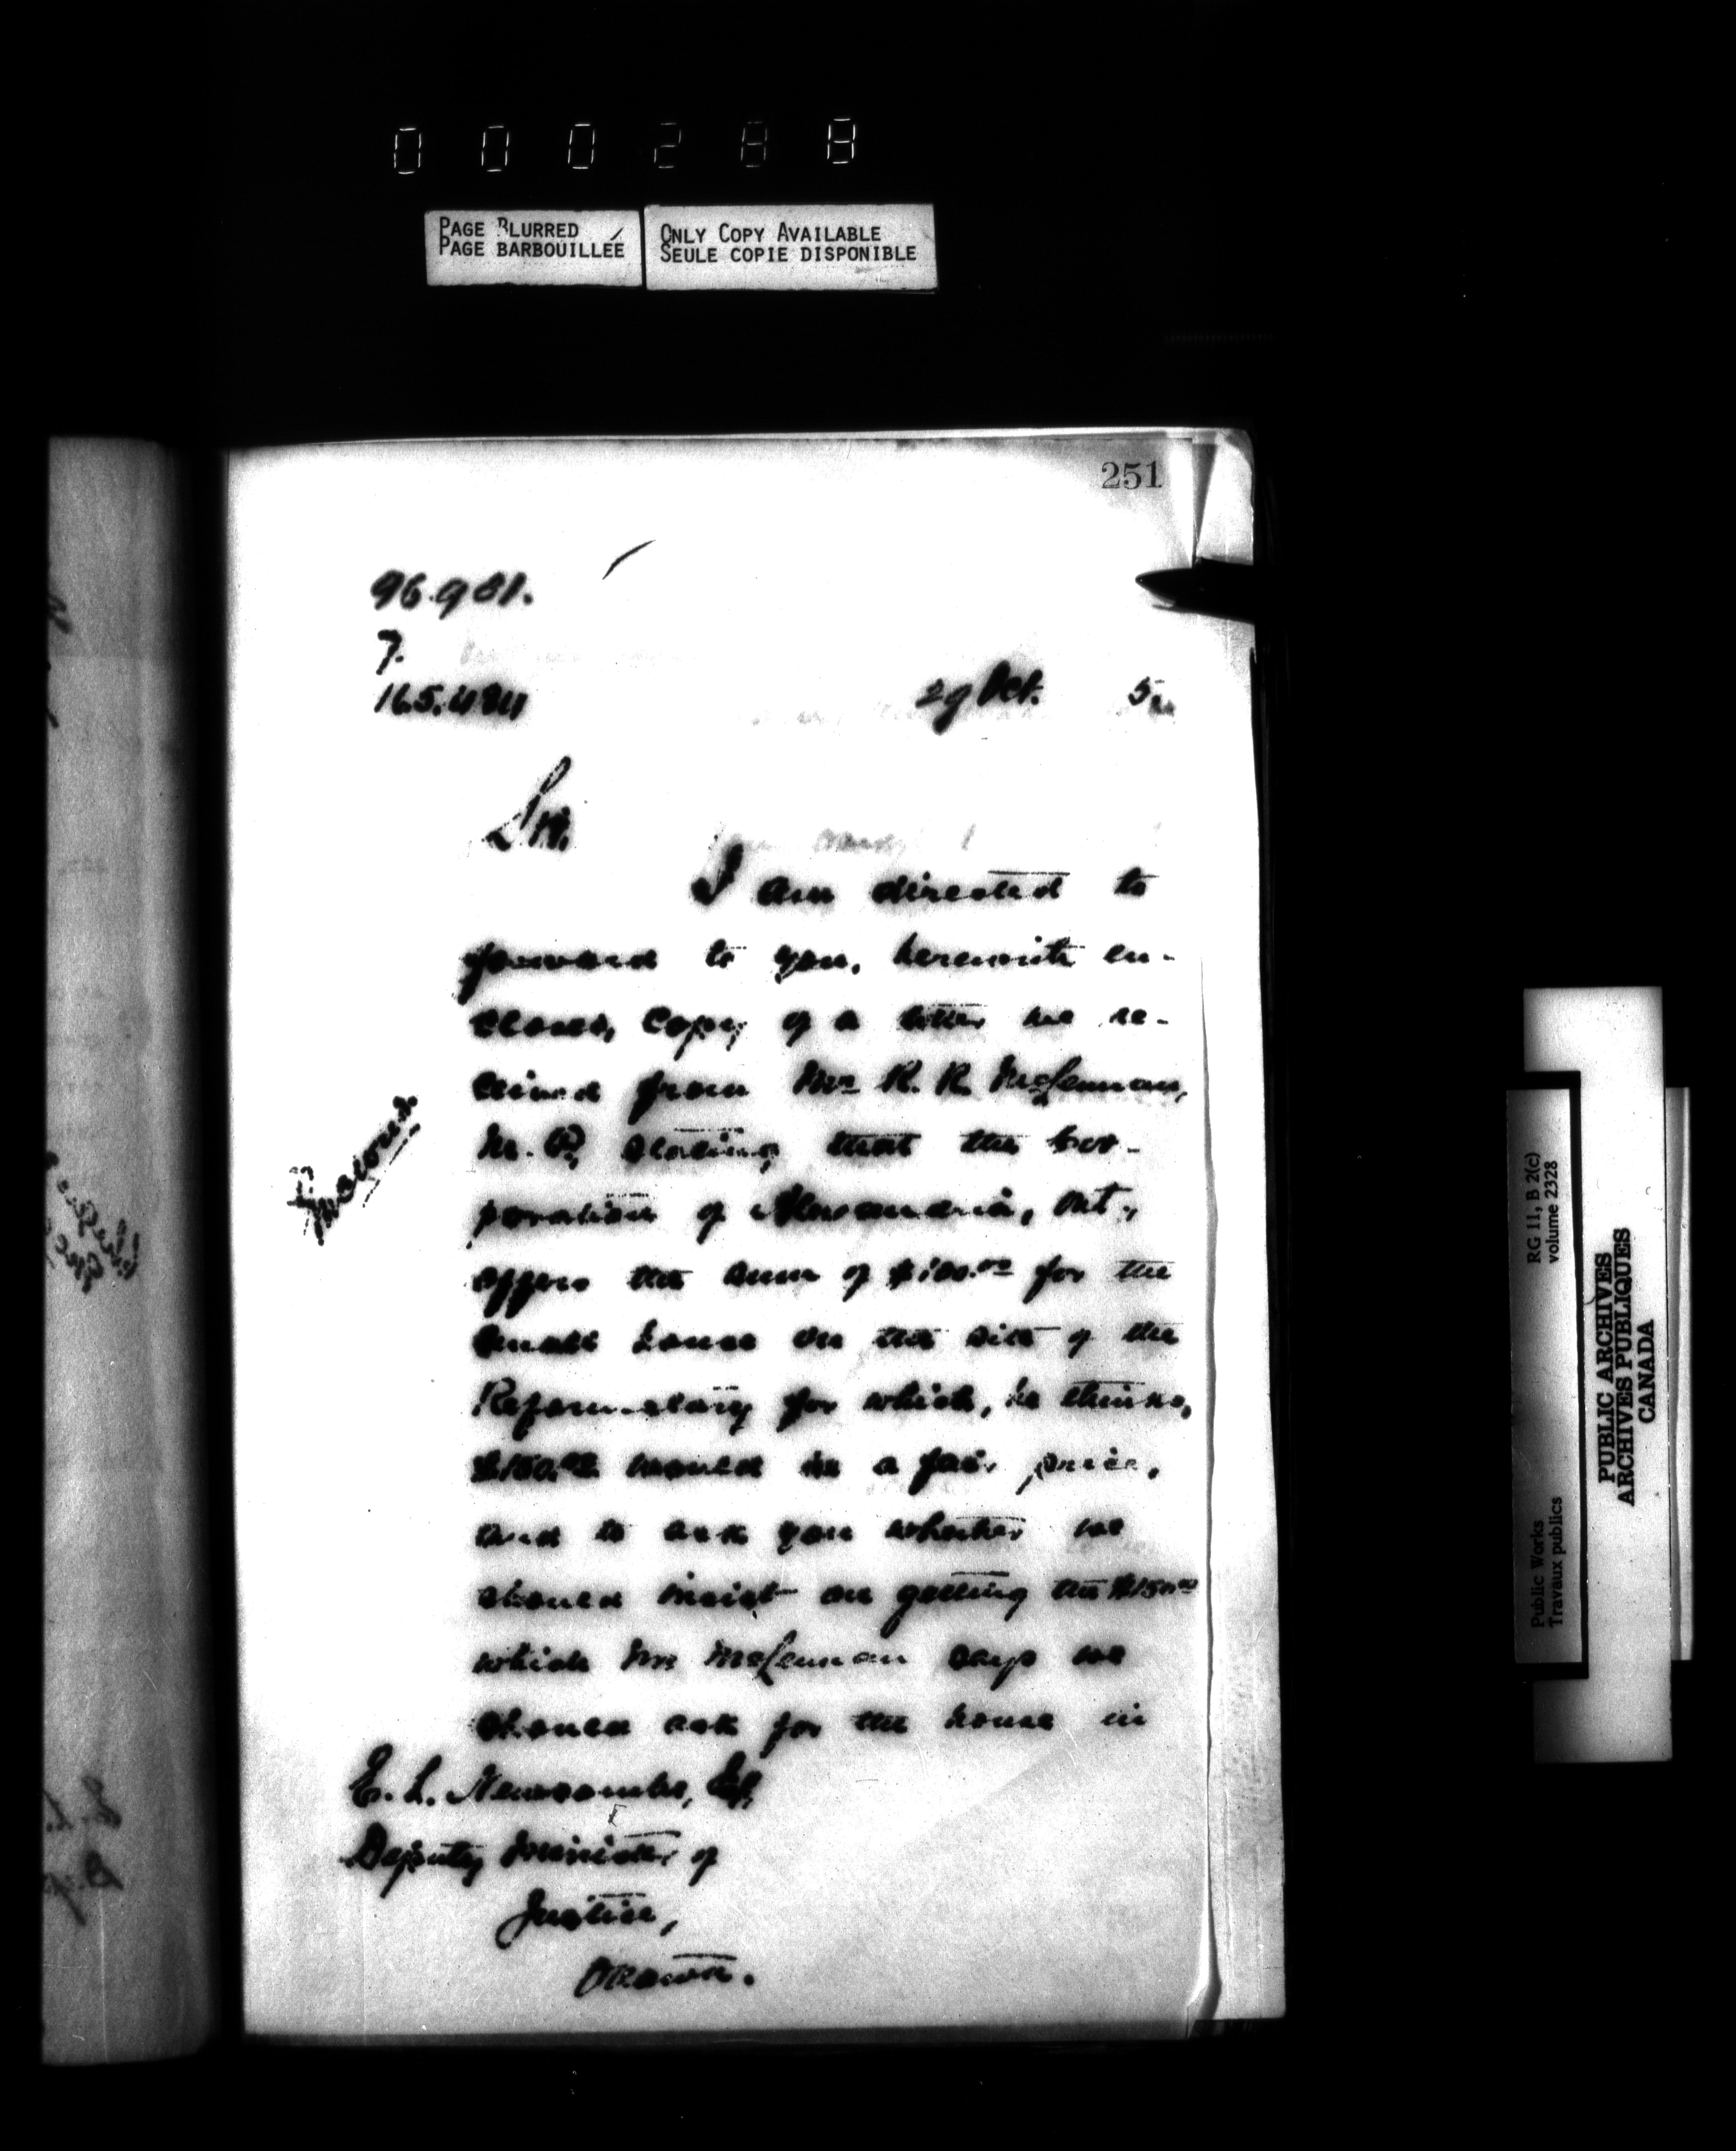 000288
PAGE BLURRED
PAGE BARBOUILLÉE
ONLY COPY AVAILABLE
SEULE COPIE DISPONIBLE
251
96.981.
7.
165.484
29 Oct. 5
Sir,
I am directed to
forward to you, herewith en-
closed, copy of a letter we re-
ceived from Mr. R. R. McLennan,
M.P., stating that the Cor-
poration of Alexandria, Ont.,
offers the sum of $100.00 for the
small house on the site of the
Reformatory for which, he thinks,
$150.00 would be a fair price,
and to ask you whether we
should insist on getting the $150.00
which Mr. McLennan says we
should ask for the house in
E. L. Newcombe, Esq,
Deputy Minister of
Justice,
Ottawa.
RG 11, B 2(c)
volume 2328
Public Works
Travaux publics
PUBLIC ARCHIVES
ARCHIVES PUBLIQUES
CANADA